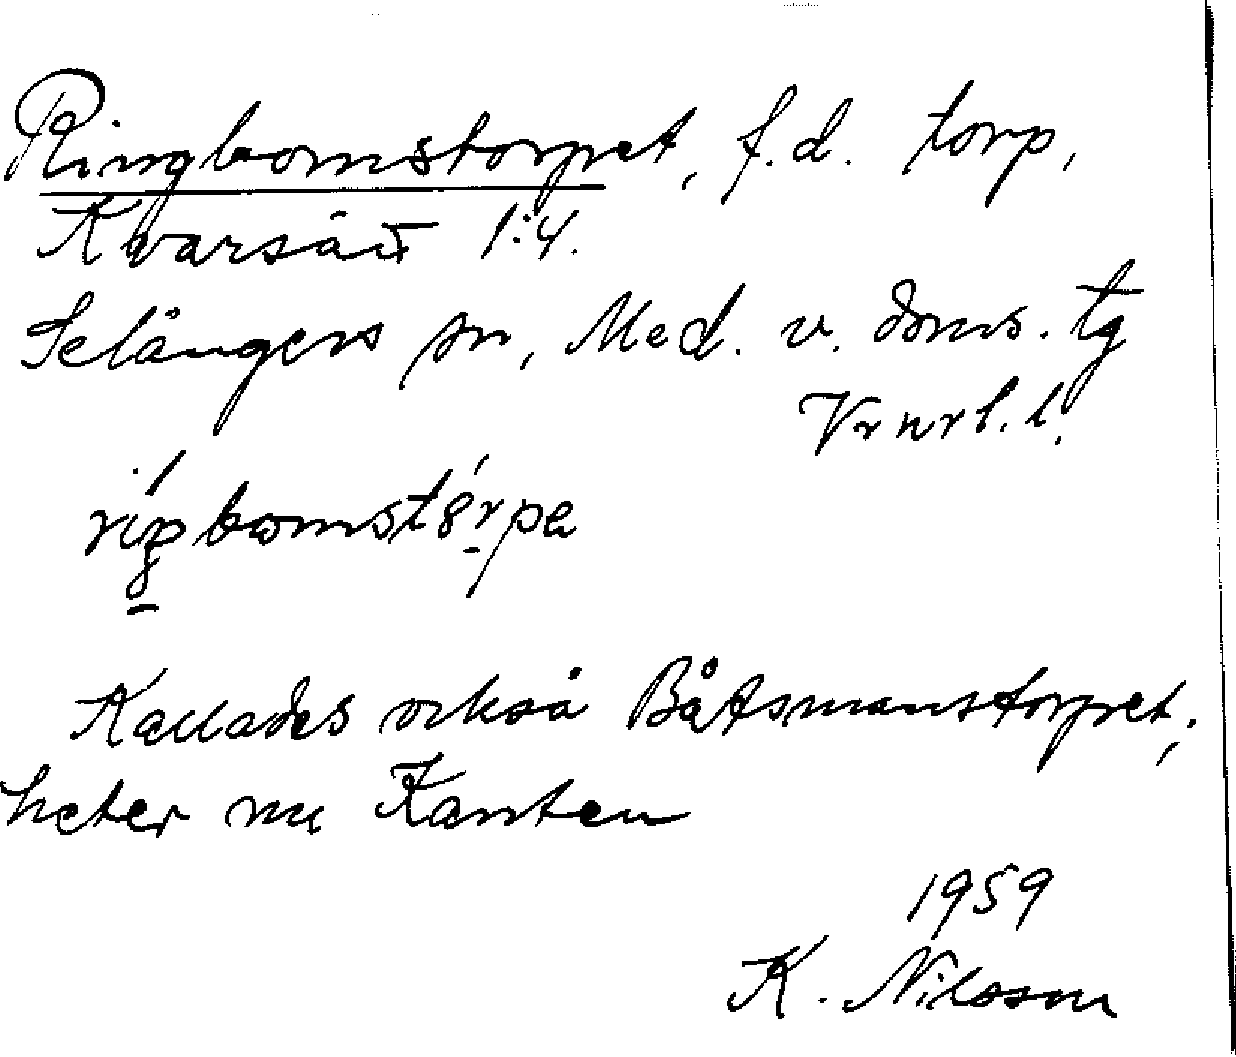 Ringbomstorpet, f.d. torp,
Kvarsätt 1:4.
Selångers sn, Med. v. doms. tg
Vrnrl. l.
Kallades också Båtsmanstorpet;
heter nu Kanten
1959
K. Nilsson